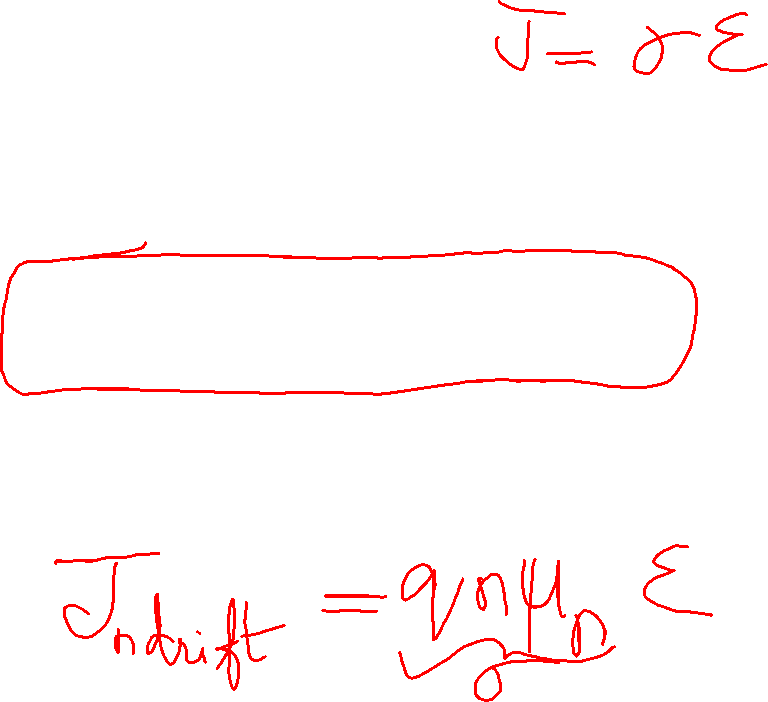 J = σ Ɛ
J_ndrift = q n μ_n Ɛ
σ